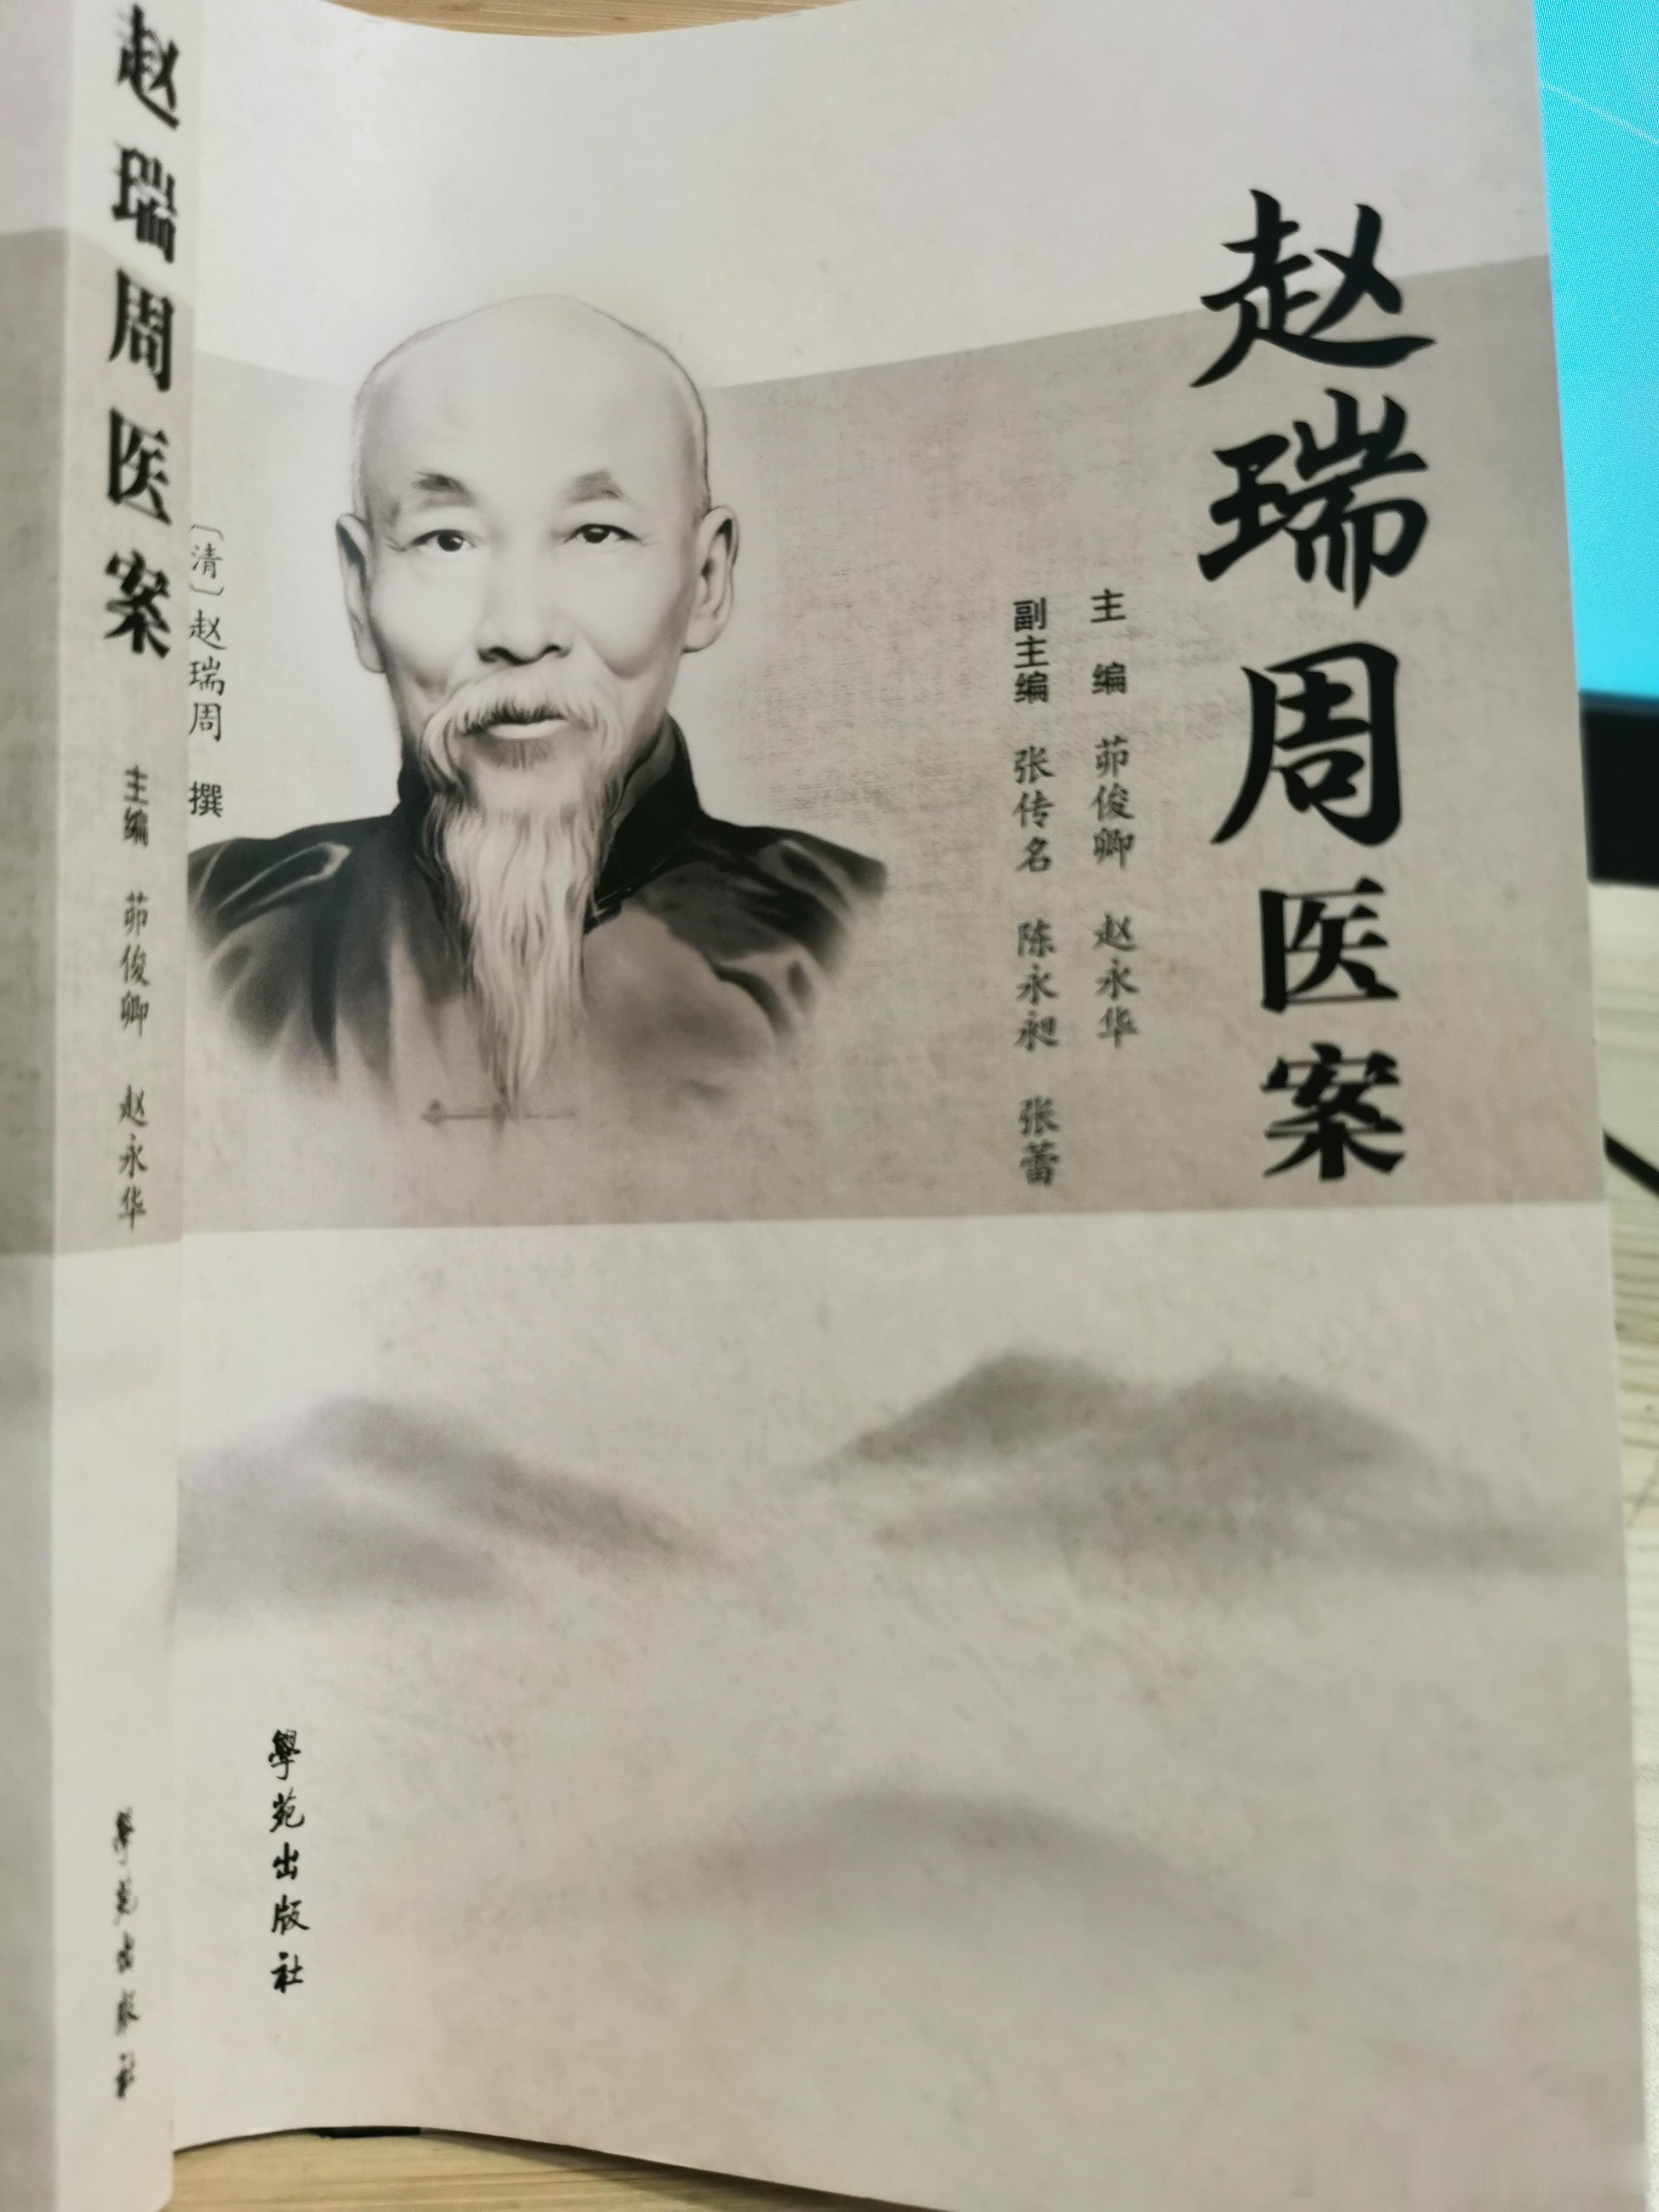 赵瑞周医案
主编 茆俊卿 赵永华
副主编 张传名 陈永昶 张蕾
〔清〕赵瑞周 撰
學苑出版社
赵瑞周医案
主编 茆俊卿 赵永华
學苑出版社